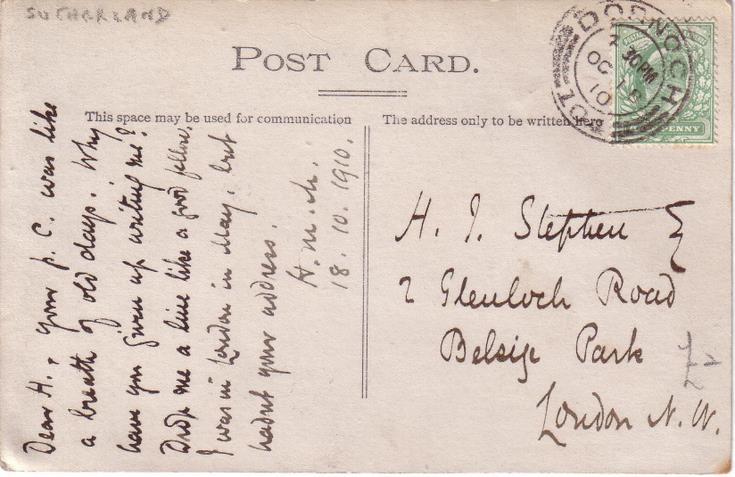 SUTHERLAND
POST CARD.
This space may be used for communication
The address only to be written here
DORNOCH
OC 18
10
PENNY
Dear H., your p. C. was like
a breath of old days. Why
have you given up writing me?
Drop me a line like a good fellow.
I was in London in May, but
hadnt your address.
H. M. M.
18. 10. 1910.
H. J. Stephen
2 Glenloch Road
Belsize Park
London N. W.